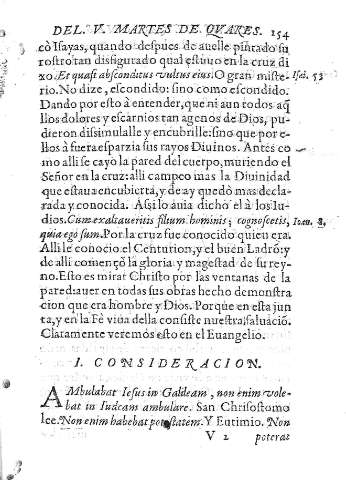 DEL. V. MARTES DE QVARES. 154
cò Isayas, quando despues de auelle pintado su
rostro tan disfigurado qual estuuo en la cruz di
xo. Et quasi absconditus vultus eius. O gran miste- Isai. 53
rio. No dize, escondido: sino como escondido.
Dando por esto à entender, que ni aun todos aq̃
llos dolores y escarnios tan agenos de Dios, pu-
dieron dissimulalle y encubrille: sino que por e-
llos à fuera esparzia sus rayos Diuinos. Antes co
mo alli se cayo la pared del cuerpo, muriendo el
Señor en la cruz: alli campeo mas la Diuinidad
que estaua encubierta, y de ay quedò mas decla-
rada y conocida. Assi lo auia dicho el à los Iu-
dios. Cum exaltaueritis filium hominis; cognoscetis, Ioan. 8,
quia ego sum. Por la cruz fue conocido quien era.
Alli le conocio el Centurion, y el buen Ladrõ: y
de alli començò la gloria y magestad de su rey-
no. Esto es mirar Christo por las ventanas de la
pared: auer en todas sus obras hecho demonstra
cion que era hombre y Dios. Porque en esta jun
ta, y en la Fè viua della consiste nuestra saluaciõ.
Claramente veremos esto en el Euangelio.
I. CONSIDERACION.
AMbulabat Iesus in Galileam, non enim vole-
bat in Iudæam ambulare. San Chrisostomo
lee. Non enim habebat potestatem. Y Eutimio. Non
V 2 poterat